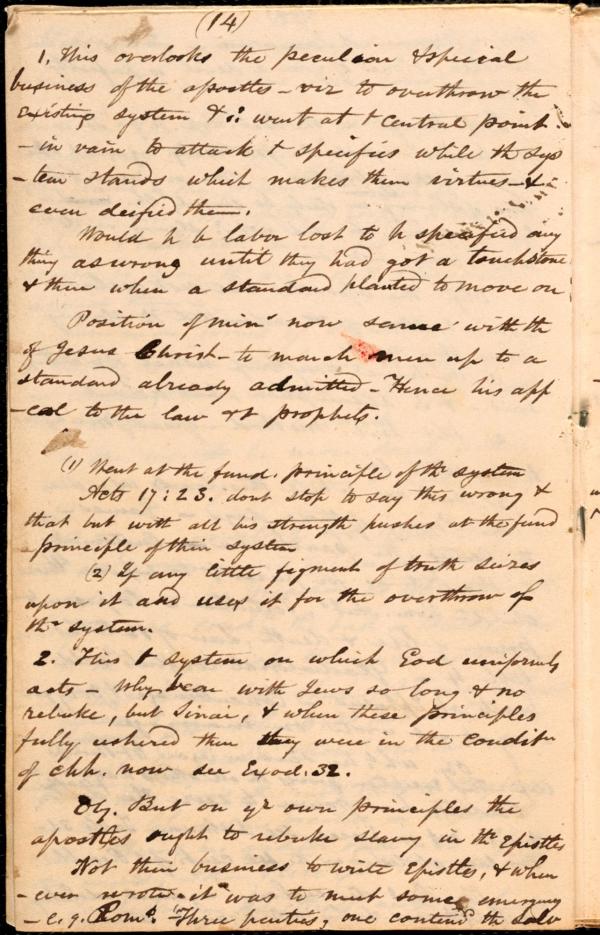 (14)
1. This overlooks the peculiar & special
business of the apostles - viz to overthrow the
existing system & ∴ went at t central point.
- in vain to attack t specifics while th sys
-tem stands which makes them virtues - &
even deified them.
Would h b labor lost to h specified any
thing as wrong until they had got a touchstone
& then when a standard planted to move on
Position of minr now same with th
of Jesus Christ - to march men up to a
standard already admitted - Hence his app
-eal to the law & t prophets.
(1) Went at the fund. principle of thr system
Acts 17:23. dont stop to say this wrong &
that but with all his strength pushes at the fund
principle of their system
(2) If any little figment of truth seizes
upon it and uses it for the overthrow of
thr system.
2. This t system on which God uniformly
acts - Why bear with Jews so long & no
rebuke, but Sinai, & when these principles
fully ushered then they were in the conditn
of chh. now see Exod. 32.
Obj. But on yr own principles the
apostles ought to rebuke slavy in thr Epistles
Not their business to write Epistles, & when
-ever wrote it was to meet some emergency
- e.g. Roms. Three parties, one contend th salv